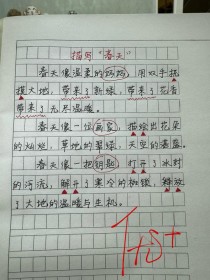 描写“春天”
春天像温柔的妈妈，用双手抚
摸大地，带来了新绿，带来了花香
带来了无尽温暖。
春天像一位画家，描绘出花朵
的灿烂，草地的翠绿，天空的湛蓝。
春天像一把钥匙，打开了冰封
的河流，解开了寒冷的枷锁，释放
了大地的温暖与生机。
优+